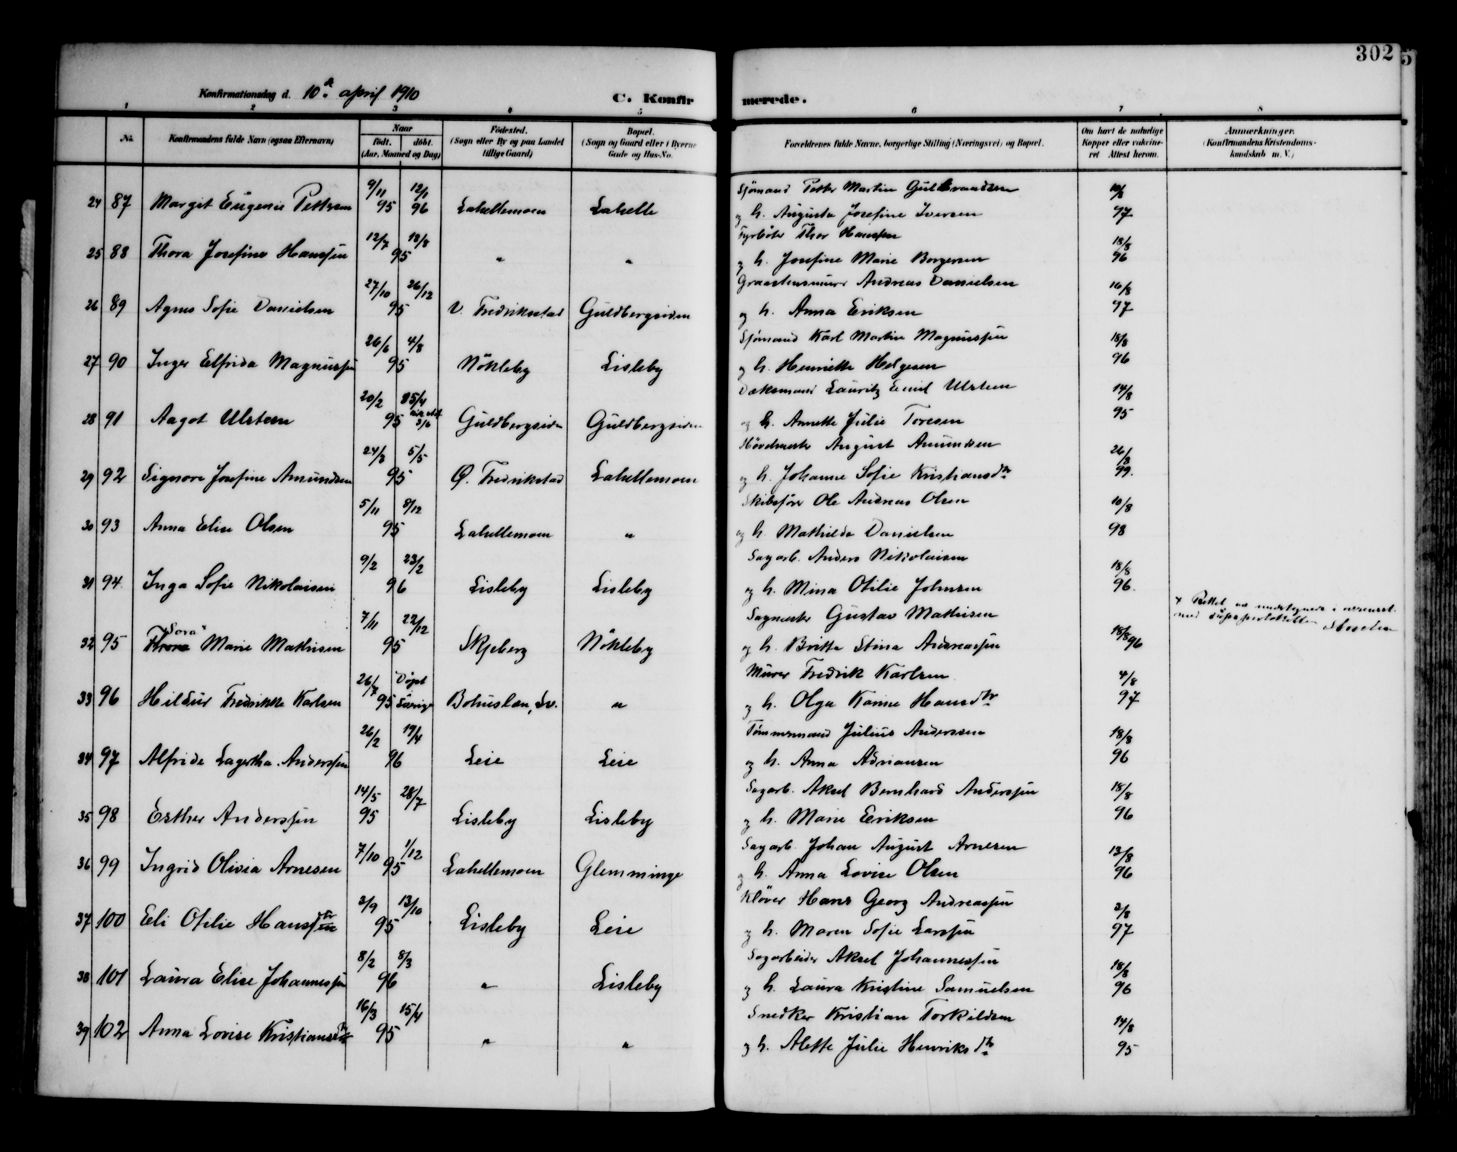 302
Konfirmationsdag d. 10de april 1910
C. Konfirmerede.
1 2 3 4 5 6 7 8
Nr.
Konfirmandens fulde Navn (ogsaa Efternavn)
Naar
født. døbt.
(Aar, Maaned og Dag)
Fødested.
(Sogn eller By og paa Landet
tillige Gaard)
Bopæl.
(Sogn og Gaard eller i Byerne
Gade og Hus-No.
Forældrenes fulde Navne, borgerlige Stilling (Næringsvei) og Bopæl.
Om havt de naturlige
Kopper eller vakcineret
Attest herom.
Anmerkninger.
(Konfirmandens Kristendomskundskab
m. V.)
24 87 Margit Eugenie Pettersen 9/11 95 12/1 96 Lahellemoen Lahelle Sjømand Petter Martin Guldbrandsen
og h. Augusta Josefine Iversen 97
25 88 Thora Josefine Hanssen 12/7 18/8 95 " " Fyrbøter Thor Hanssen
og h. Josefine Marie Borgersen 18/8 96
26 89 Agnes Sofie Danielsen 27/10 26/12 95 V. Fredrikstad Guldbergsiden Andreas Danielsen
og h. Anna Eriksen 16/8 97
27 90 Inger Elfrida Magnussen 26/6 4/8 95 Nøkleby Lisleby Sjømand Karl Martin Magnussen
og h. Henriette Helgesen 18/8 96
28 91 Aagot Ulsteen 20/2 95 Guldbergsiden Guldbergsiden Dæksmand Lauritz Emil Ulsteen
og h. Annette Julie Toresen 14/8 95
29 92 Signora Josefine Amundsen 24/3 5/5 95 Ø. Fredrikstad Lahellemoen August Amundsen
og h. Johanne Sofie Kristiansdtr 26/8 99.
30 93 Anna Elise Olsen 5/11 8/12 95 Lahellemoen " Skibsfører Ole Andreas Olsen
og h. Mathilde Danielsen 10/8 98
31 94 Inga Sofie Nikolaisen 9/2 23/2 96 Lisleby Lisleby Sagarb. Anders Nikolaisen
og h. Mina Otilie Johnsen 18/8 96.
32 95 Thora "Dora" Marie Mathisen 7/11 22/12 95 Skjeberg Nøkleby Sagmester Gustav Mathisen
og h. Britta Stina Andreassen 18/8 96
33 96 Hildur Fredrikke Karlsen 26/7 95 Døpt Sverige Bohuslen, Sv. " Murer Fredrik Karlsen
og h. Olga Karine Hansdtr 4/8 97
34 97 Alfride Lagertha Anderssen 26/2 19/4 96 Leie Leie Tømmermand Julius Anderssen
og h. Anna Adriansen 18/8 96
35 98 Esther Anderssen 14/5 28/7 95 Lisleby Lisleby Sagarb. Aksel Bernhard Anderssen
og h. Marie Eriksen 18/8 96
36 99 Ingrid Olivia Arnesen 7/10 1/12 95 Lahellemoen Glemminge Sagarb. Johan August Arnesen
og h. Anna Lovise Olsen 13/8 96
37 100 Eli Otilie Hansdtr 2/9 13/10 95 Lisleby Leie Kløver Hans Georg Andreassen
og h. Maren Sofie Larssen 2/8 97
38 101 Laura Elise Johannessen 8/2 8/3 96 " Lisleby Sagarbeider Aksel Johannessen
og h. Laura Kristine Samuelsen 18/8 96
39 102 Anna Lovise Kristiansdtr 16/3 15/4 95 " " Snedker Kristian Torkildsen
og h. Alette Julie Henriksdtr 14/8 95